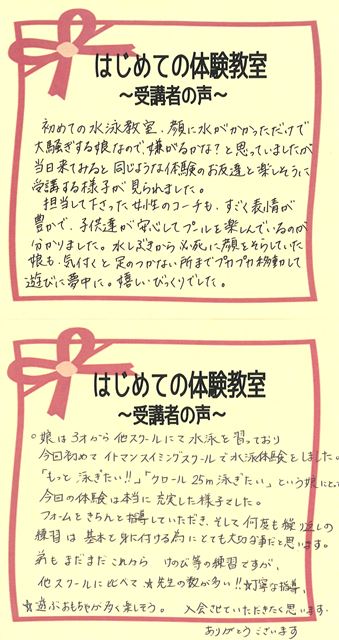 はじめての体験教室
~受講者の声~
初めての水泳教室、顔に水がかかっただけで
大騒ぎする娘なので、嫌がるかな?と思っていましたが
当日来てみると同じような体験のお友達と楽しそうに
受講する様子が見られました。
担当して下さった女性のコーチも、すごく表情が
豊かで、子供達が安心してプールを楽しんでいるのが
分かりました。水しぶきから必死に顔をそらしていた
娘も、気付くと足のつかない所までプカプカ移動して
遊びに夢中に。嬉しいびっくりでした。
はじめての体験教室
~受講者の声~
○娘は3才から他スクールにて水泳を習っており
今回初めてイトマンスイミングスクールで水泳体験をしました。
「もっと泳ぎたい!!」「クロール25m泳ぎたい」という娘にとって
今日の体験は本当に充実した様子でした。
フォームをきちんと指導していただき、そして何度も繰り返しの
練習は基本を身に付ける為にとても大切な事だと思います。
弟もまだまだこれから けのび等の練習ですが、
他スクールに比べて☆先生の数が多い!!☆丁寧な指導、
☆遊ぶおもちゃが多く楽しそう。 入会させていただきたく思います。
ありがとうございます